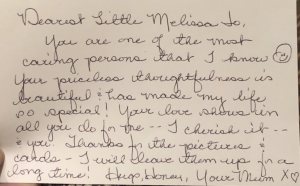 Dearest Little Melissa Jo,
You are one of the most
caring persons that I know ☺
Your priceless thoughtfulness is
beautiful & has made my life
so special! Your love shows in
all you do for me -- I cherish it --
& you. Thanks for the pictures &
cards - I will leave them up for a
long time! Hugs, Honey, Your Mum X♡